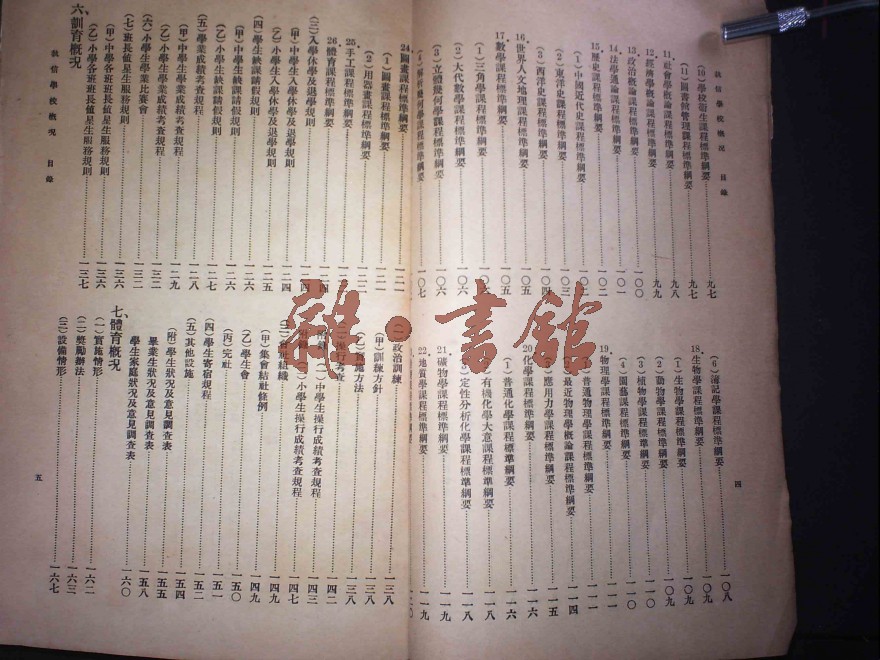 敦信學校概況 目錄
(10)學校衞生課程標準綱要……九七
(11)圖書館管理課程標準綱要……九七
11.社會學概論課程標準綱要……九八
12.經濟學概論課程標準綱要……九九
13.政治概論課程標準綱要……一〇〇
14.法學通論課程標準綱要……一〇〇
15.歷史課程標準綱要……一〇二
(1)中國近代史課程標準綱要
(2)東洋史課程標準綱要……一〇三
(3)西洋史課程標準綱要……一〇四
16.世界人文地理課程標準綱要……一〇五
17.數學課程標準綱要……一〇五
(1)三角學課程標準綱要……一〇五
(2)大代數學課程標準綱要……一〇六
(3)立體幾何學課程標準綱要……一〇六
(4)解析幾何學課程標準綱要……一〇七
(6)簿記學課程標準綱要……一〇八
18.生物學課程標準綱要……一〇九
(1)生物學課程標準綱要……一〇九
(2)動物學課程標準綱要……一一〇
(3)植物學課程標準綱要
(4)園藝課程標準綱要……一一〇
19.物理學課程標準綱要……一一一
普通物理學課程標準綱要……一一一
最近物理學概論課程標準綱要……一一四
應用力學課程標準綱要……一一五
20.化學課程標準綱要……一一六
(1)普通化學課程標準綱要……一一六
有機化學大意課程標準綱要……一一八
定性分析化學課程標準綱要……一一八
21.礦物學課程標準綱要……一一九
22.地質學課程標準綱要……一一九
四
24.圖畫課程標準綱要……一二一
(1)圖畫課程標準綱要……一二一
(2)用器畫課程標準綱要……一二二
25.手工課程標準綱要……一二三
26.體育課程標準綱要……一二四
(三)入學休學及退學規則……一二四
(甲)中學生入學休學及退學規則……一二四
(乙)小學生入學休學及退學規則……一二五
(四)學生缺課請假規則……一二六
(甲)中學生缺課請假規則……一二六
(乙)小學生缺課請假規則……一二七
(五)學業成績考查規程……一二八
(甲)中學生學業成績考查規程……一二九
(乙)小學生學業成績考查規程……一三二
(六)小學生學業比賽會……一三二
(七)班長值星生服務規則……一三六
(甲)中學各班班長值星生服務規則……一三六
(乙)小學各班班長值星生服務規則……一三七
六、訓育概況
(一)政治訓練……一三八
(甲)訓練方針……一三八
(乙)實施方法……一三八
操行考查……一四二
(一)中學生操行成績考查規程……一四三
(二)小學生操行成績考查規程……一四七
(三)會社組織……一四九
(甲)集會結社條例……一四九
(乙)學生會……一五〇
(丙)完社……一五一
(四)學生寄宿規程……一五二
(五)其他設施……一五四
(附)學生狀況及意見調查表……一五五
畢業生狀況及意見調查表……一五八
學生家庭狀況及意見調查表……一六〇
七、體育概況
(一)實施情形……一六二
(二)獎勵辦法……一六三
(三)設備情形……一六七
敦信學校概況 目錄
五
雜·書舘